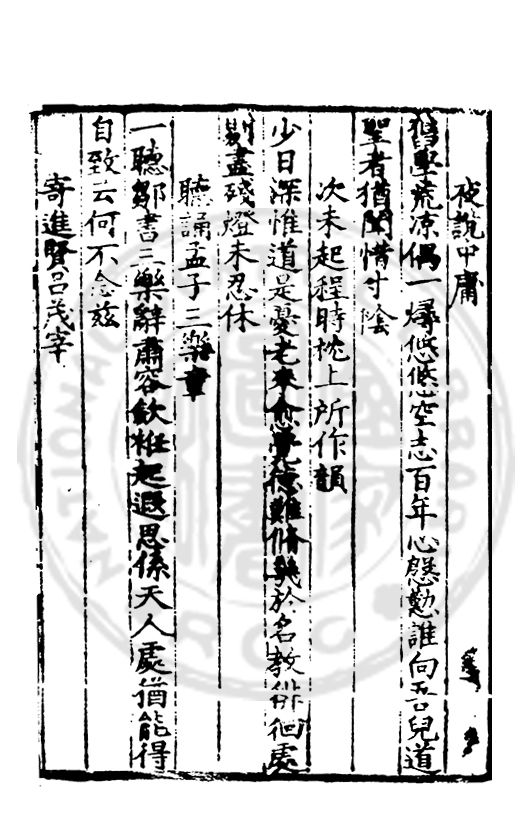 夜說中庸
舊學荒凉偶一燖悠悠空志百年心慇懃誰向吾兒道
聖者猶聞惜寸陰
次未起程時枕上所作韻
少日深惟道是憂老來愈覺德難脩幾於名教徘徊處
剔盡殘燈未忍休
聽誦孟子三樂章
一聽鄒書三樂辭肅容欽衽起遐思係天人處猶能得
自致云何不念茲
寄進賢呂茂宰